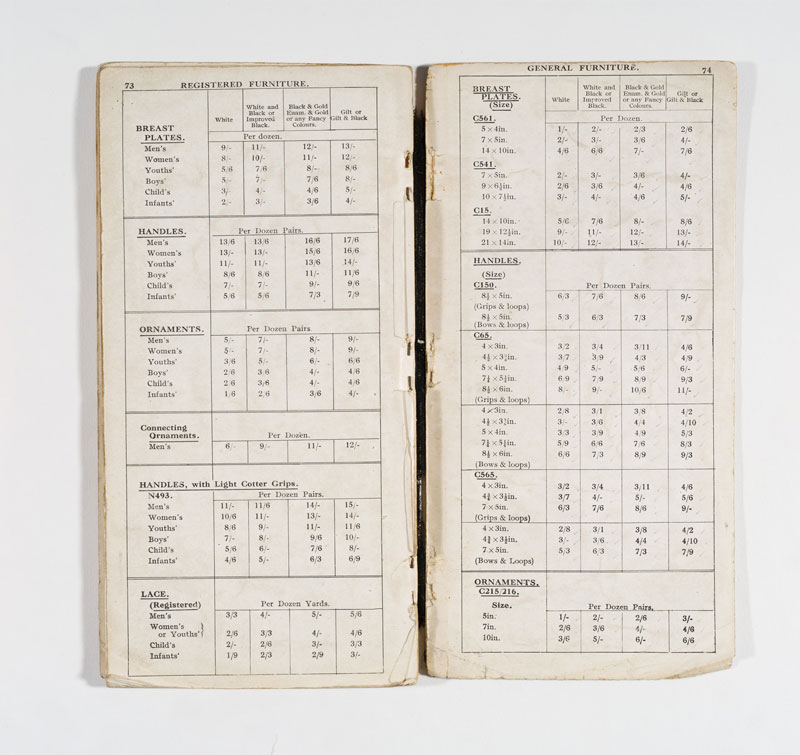 73 REGISTERED FURNITURE.
White
White and Black or Improved Black.
Black & Gold Enam. & Gold or any Fancy Colours.
Gilt or Gilt & Black
BREAST PLATES. Per dozen.
Men's 9/- 11/- 12/- 13/-
Women's 8/- 10/- 11/- 12/-
Youths' 5/6 7/6 8/- 8/6
Boys' 5/- 7/- 7/6 8/-
Child's 3/ 4/- 4/6 5/-
Infants' 2/- 3/- 3/6 4/-
HANDLES. Per Dozen Pairs.
Men's 13/6 13/6 16/6 17/6
Women's 13/- 13/- 15/6 16/6
Youths' 11/- 11/- 13/6 14/-
Boys' 8/6 8/6 11/- 11/6
Child's 7/- 7/- 9/- 9/6
Infants' 5/6 5/6 7/3 7/9
ORNAMENTS. Per Dozen Pairs.
Men's 5/- 7/- 8/- 9/-
Women's 5/- 7/- 8/- 9/-
Youths' 3/6 5/- 6/- 6/6
Boys' 2/6 3/6 4/- 4/6
Child's 2/6 3/6 4/- 4/6
Infants' 1/6 2/6 3/6 4/-
Connecting
Ornaments. Per Dozen.
Men's 6/- 9/- 11/- 12/-
HANDLES, with Light Cotter Grips.
N493. Per Dozen Pairs.
Men's 11/- 11/6 14/- 15/-
Women's 10/6 11/- 13/- 14/-
Youths' 8/6 9/- 11/- 11/6
Boys' 7/- 8/- 9/6 10/-
Child's 5/6 6/- 7/6 8/-
Infants' 4/6 5/- 6/3 6/9
LACE.
(Registered) Per Dozen Yards.
Men's 3/3 4/- 5/- 5/6
Women's
or Youths' 2/6 3/3 4/- 4/6
Child's 2/- 2/6 3/- 3/3
Infants' 1/9 2/3 2/9 3/-
GENERAL FURNITURE. 74
BREAST PLATES. (Size)
White
White and Black or Improved Black.
Black & Gold Enam. & Gold or any Fancy Colours.
Gilt or Gilt & Black
C561. Per Dozen.
5 × 4in. 1/- 2/- 2/3 2/6
7 × 5in. 2/- 3/- 3/6 4/-
14 × 10in. 4/6 6/6 7/- 7/6
C541.
7 × 5in. 2/- 3/- 3/6 4/-
9 × 6½in. 2/6 3/6 4/- 4/6
10 × 7½in. 3/- 4/- 4/6 5/-
C15.
14 × 10in. 5/6 7/6 8/- 8/6
19 × 12½in. 9/- 11/- 12/- 13/-
21 × 14in. 10/- 12/- 13/- 14/-
HANDLES.
(Size)
C150. Per Dozen Pairs.
8½ × 5in. 6/3 7/6 8/6 9/-
(Grips & loops)
8½ × 5in. 5/3 6/3 7/3 7/9
(Bows & loops)
C65.
4 × 3in. 3/2 3/4 3/11 4/6
4½ × 3½in. 3/7 3/9 4/3 4/9
5 × 4in. 4/9 5/- 5/6 6/-
7½ × 5½in. 6/9 7/9 8/9 9/3
8½ × 6in. 8/- 9/- 10/6 11/-
(Grips & loops)
4 × 3in. 2/8 3/1 3/8 4/2
4½ × 3½in. 3/- 3/6 4/4 4/10
5 × 4in. 3/3 3/9 4/9 5/3
7½ × 5½in. 5/9 6/6 7/6 8/3
8½ × 6in. 6/6 7/3 8/9 9/3
(Bows & loops)
C565.
4 × 3in. 3/2 3/4 3/11 4/6
4¾ × 3½in. 3/7 4/- 5/- 5/6
7 × 5in. 6/3 7/6 8/6 9/-
(Grips & loops)
4 × 3in. 2/8 3/1 3/8 4/2
4¾ × 3½in. 3/- 3/6 4/4 4/10
7 × 5in. 5/3 6/3 7/3 7/9
(Bows & Loops)
ORNAMENTS.
C215/216.
Size. Per Dozen Pairs.
5in. 1/- 2/- 2/6 3/-
7in. 2/6 3/6 4/- 4/6
10in. 3/6 5/- 6/- 6/6